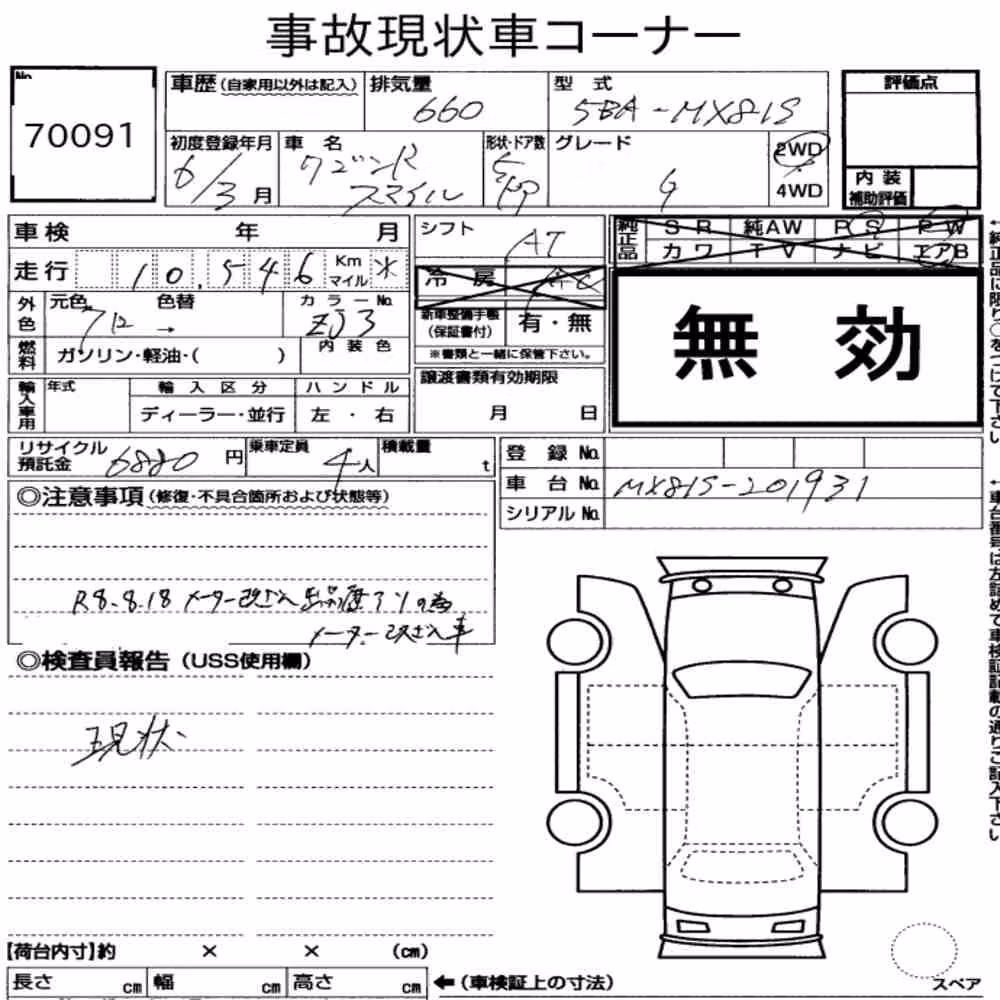 事故現状車コーナー
No. 70091
車歴 (自家用以外は記入)
排気量 660
型式 5BA-MX81S
評価点
初度登録年月 6/3月
車名 ワゴンR スマイル
形状・ドア数 5
グレード G
2WD
4WD
内装補助評価
車検 年 月
シフト AT
純正品 SR 純AW PS PW
カワ TV ナビ エアB
走行 10,546 Km マイル ※
冷房 AC
外色 元色 色替 カラーNo.
クロ → ZJ3
新車整備手帳(保証書付) 有・無
無効
燃料 ガソリン・軽油・( ) 内装色
※書類と一緒に保管下さい。
輸入車用 年式 輸入区分 ハンドル
ディーラー・並行 左・右
譲渡書類有効期限
月 日
リサイクル預託金 6880円 乗車定員 4人 積載量 t
登録No.
車台No. MX81S-201931
シリアルNo.
◎注意事項(修復・不具合箇所および状態等)
R8.8.18 メーター改ざん出品歴アリの為
メーター改ざん車
◎検査員報告(USS使用欄)
現状
【荷台内寸】約 × × (cm)
長さ cm 幅 cm 高さ cm ←(車検証上の寸法)
スペア
←純正品に限り○をつけて下さい
←車台番号は左詰めで車検証記載の通りご記入下さい